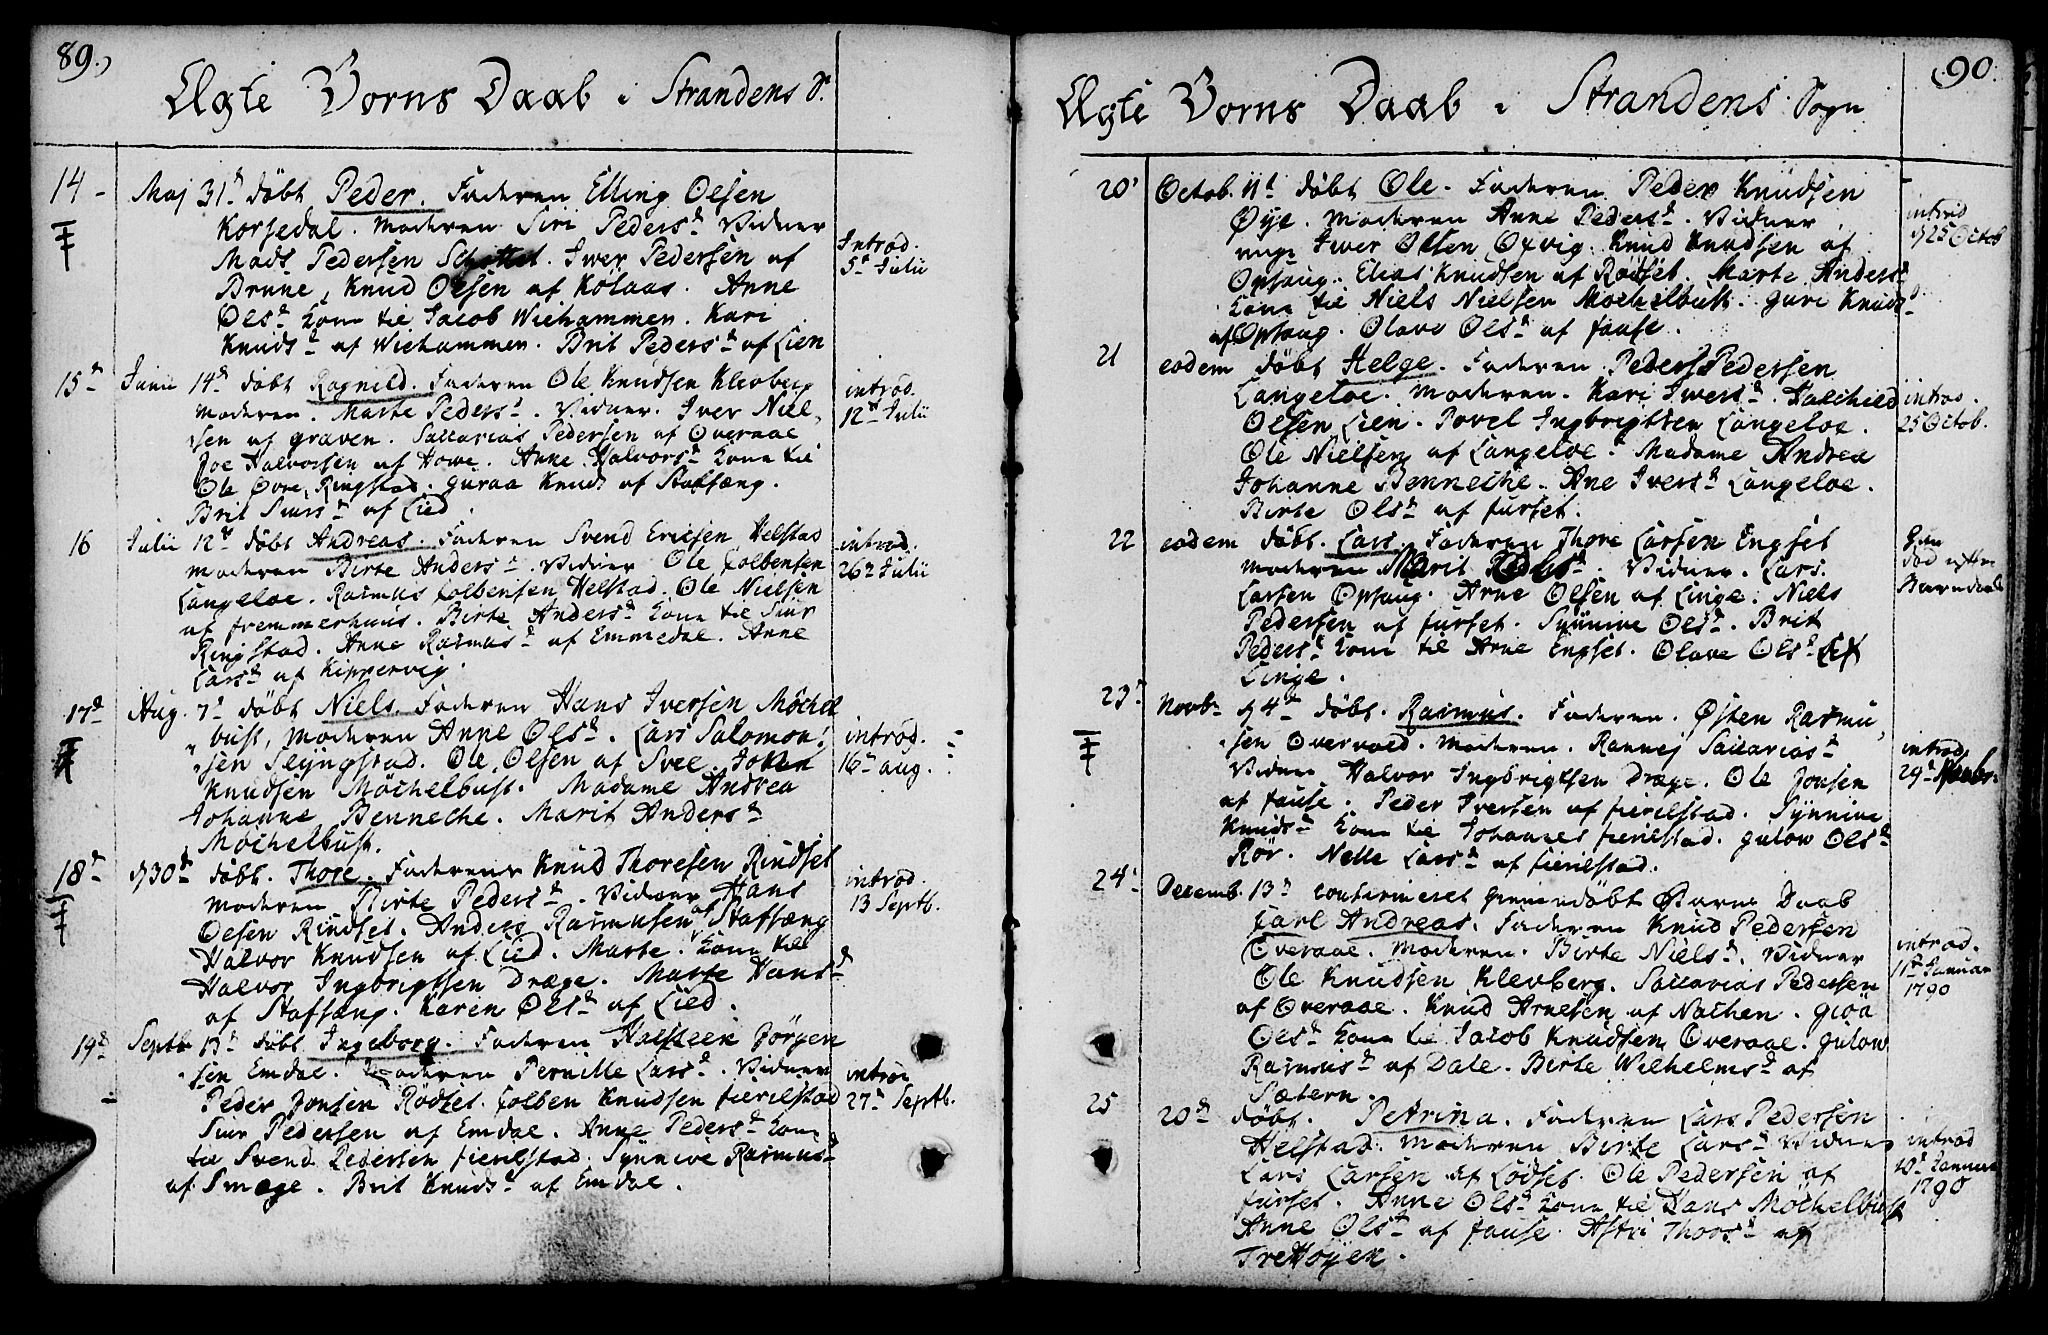 89.)
Ægte Borns Daab i Strandens S.
14 - Maj 31te döbt Peder. Faderen Elling Olsen
Korsedal. Moderen Siri Pedersd. Vidner
Mads Pedersen Schottet. Iver Pedersen af
Brune, Knud Olsen af Kolaas. Anne
Olsd. kone til Jacob Wiehammen. Kari
Knudsd. af Wiehammen. Brit Pedersd. af Lien
Introd.
5te Julii
15de Junii 14de döbt Ragnild. Faderen Ole Knudsen Klevberg
Moderen. Marte Pedersd. Vidner. Iver Niel-
sen af Graven. Saccarias Pedersen af Overaae
Joe Halvorsen af Howe. Anne Halvorsd. kone til
Ole Øvre Ringstad. Guraa Knuds af Stafsæng.
Brit Siursd. af Lied.
introd.
12te Julii
16 Julii 12te döbt Andreas. Faderen Svend Ericsen Helstad
Moderen Birte Andersd. Vidner Ole Colbensen
Langeloe. Rasmus Colbensen Helstad. Ole Nielsen
af Fremmerhuus. Birte Andersd. kone til Siur
Ringstad. Anne Rasmusd. af Emmedal. Anne
Larsd. af Kippervig.
introd.
26de Julii
17de Aug. 7de döbt Niels. Faderen Hans Iversen Möchel
bust, Moderen Anne Olsd. Lars Salomon-
sen Slyngstad. Ole Olsen af Svee. Johan
Knudsen Möchelbust. Madame Andrea
Johanne Benneche. Marit Andersd.
Möchelbust.
introd.
16de aug.
18de d 30te döbt. Thore. Faderen Knud Thoresen Rindset
Moderen Birte Pedersd. Vidner Hans
Olsen Rindset. Anders Rasmusen af Stafsæng
Halvor Knudsen af Lied. Marte kone til
Halvor Ingbrigtsen Dræge. Marte Hansd.
af Stafsæng. Karen Olsd. af Lied.
introd.
13 Septb.
19de Septb. 13de döbt Ingeborg. Faderen Halsteen Jörgen
sen Emdal. Moderen Pernille Larsd. Vidner
Peder Jonsen Rödset. Colben Knudsen Fierilstad
Siur Pedersen af Emdal. Anne Pedersd. kone
til Svend Pedersen Fierilstad. Synnive Rasmusd.
af Smøge. Brit Knudsd. af Emdal.
introd
27de Septb.
90.
Ægte Borns Daab i Strandens Sogn
20 Octob. 11te döbt Ole. Faderen Peder Knudsen
Øye. Moderen Anne Pedersd. Vidner
unge Iwer Olsen Oxvig. Knud Knudsen af
Opsaug. Elias Knudsen af Rødset. Marte Andersd.
kone til Niels Nielsen Mochelbust. Guri Knudsd.
af Opsaug. Olave Olsd. af Fause.
introd
d 25 Octob
21 eodem döbt Helge. Faderen Peders Pedersen
Langeloe. Moderen. Kari Iwersd. Halchild
Olsen Lien. Povel Ingbrigtsen Langeloe.
Ole Nielsen af Langeloe. Madame Andrea
Johanne Benneche. Ane Iversd. Langeloe.
Birte Olsd. af Furset.
introd.
25 Octob.
22 eodem döbt. Lars. Faderen Thore Larsen Engset
Moderen Marit Pedersd. Vidner. Lars
Larsen Opsaug. Arne Olsen af Linge. Niels
Pedersen af Furset. Synnive Olsd. Brit
Pedersd. kone til Arne Engset. Olave Olsd. af
Linge.
död efter
Barndaab
23 Novb. d 4de döbt. Rasmus. Faderen. Østen Rasmu-
sen Overvold. Moderen. Rannej Saccariasd.
Vidner Halvor Ingbrigtsen Dræge. Ole Jonsen
af Fause. Peder Iversen af Fierilstad. Synnive
Knudsd. kone til Johannes Fierilstad. Gulow Olsd.
Rör. Nelle Larsd. af Fierilstad.
introd.
29de Novbr.
24 Decemb. 13de confirmeret hiemmedöbt Barns Daab
Carl Andreas. Faderen Knud Pedersen
Overaae. Moderen. Birte Nielsd. Vidner
Ole Knudsen Klevberg. Saccarias Pedersen
af Overaae. Knud Arnesen af Nachen. Gioa
Olsd. kone til Jacob Knudsen Overaae. Gulow
Rasmusd. af Dale. Birte Wilhelmsd. af
Sætern.
introd.
11te Januar
1790
25 20de döbt. Petrina. Faderen Lars Pedersen
Helstad. Moderen Birte Larsd. Vidner
Lars Larsen af Lødset. Ole Pedersen af
Furset. Anne Olsd. kone til Hans Möchelbust
Anne Olsd. af Fause. Astri Thoosd. af
Trethöjen.
introd
10de Januar
1790